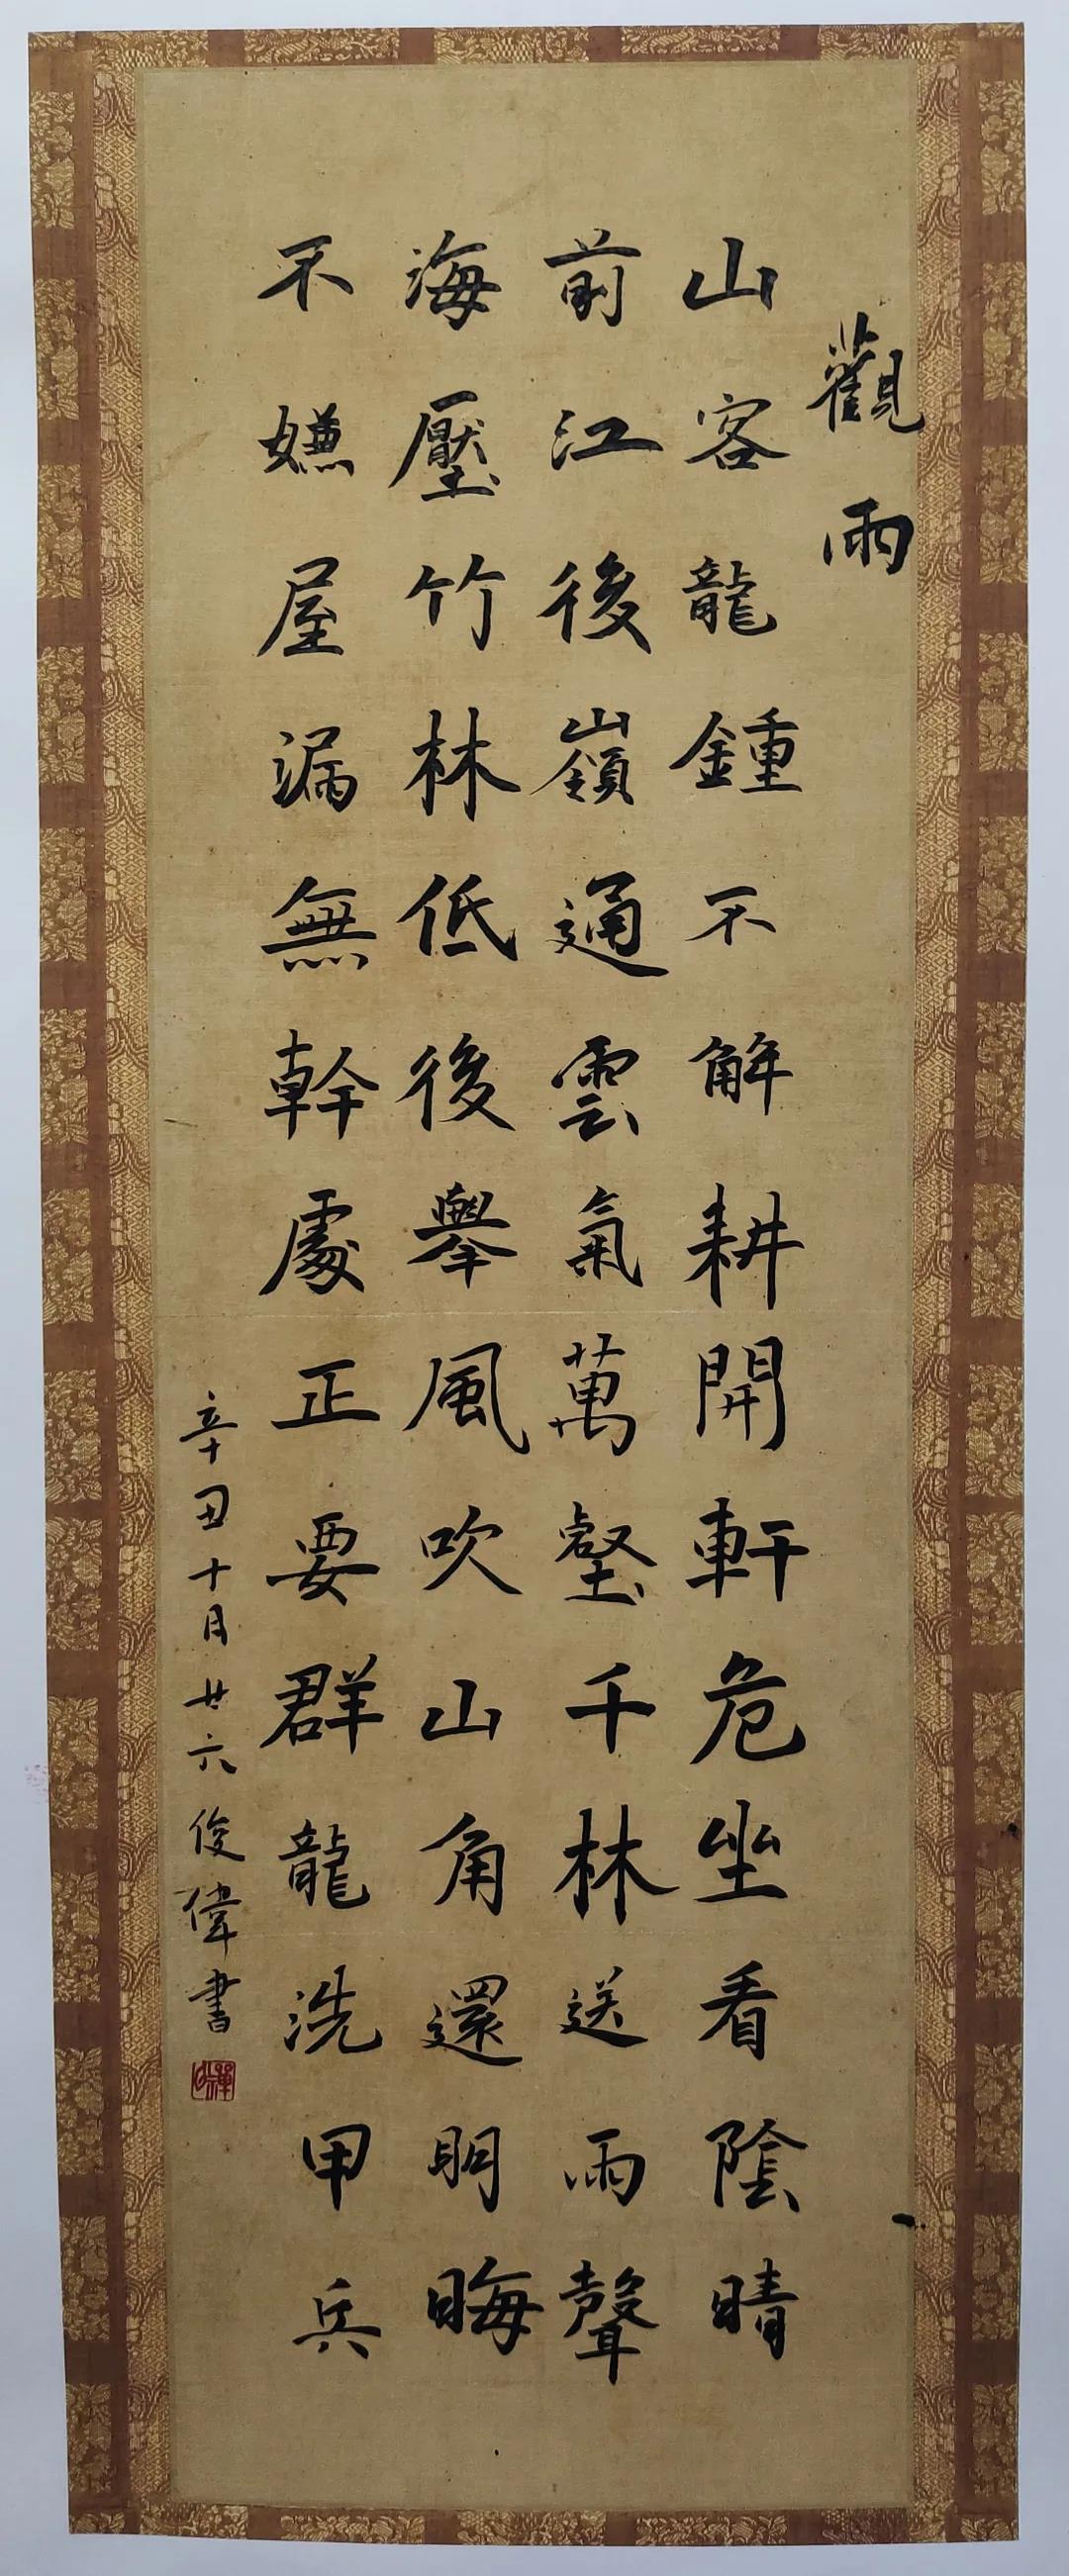 觀雨
山客龍鍾不解耕開軒危坐看陰晴
前江後嶺通雲氣萬壑千林送雨聲
海壓竹林低後舉風吹山角還明晦
不嫌屋漏無幹處正要群龍洗甲兵
辛丑十月廿六俊偉書